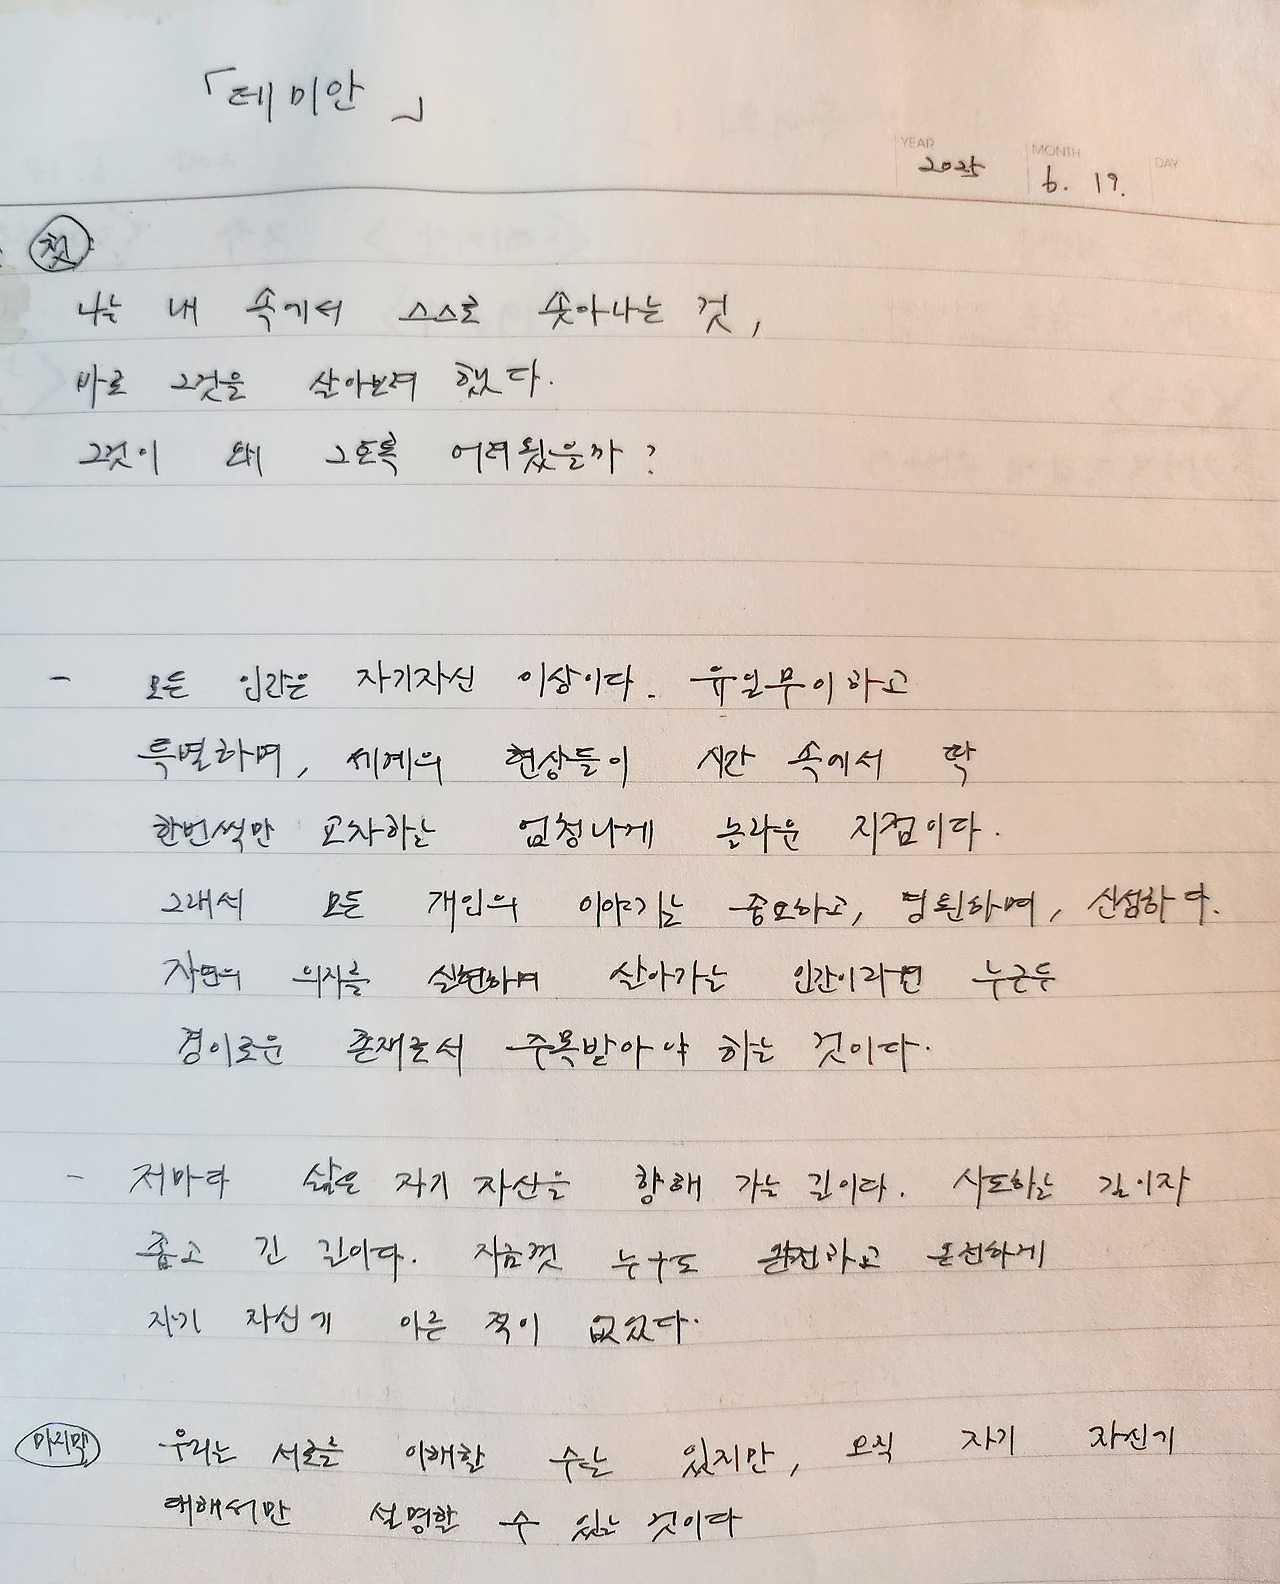 「데미안」
YEAR MONTH DAY
2025 6. 19.
첫
나는 내 속에서 스스로 솟아나는 것,
바로 그것을 살아보려 했다.
그것이 왜 그토록 어려웠을까?
- 모든 인간은 자기자신 이상이다. 유일무이하고
특별하며, 세계의 현상들이 시간 속에서 딱
한번씩만 교차하는 엄청나게 놀라운 지점이다.
그래서 모든 개인의 이야기는 중요하고, 영원하며, 신성하다.
자연의 의지를 실현하며 살아가는 인간이라면 누구든
경이로운 존재로서 주목받아야 하는 것이다.
- 저마다 삶은 자기 자신을 향해 가는 길이다. 시도하는 길이자
좁고 긴 길이다. 지금껏 누구도 완전하고 온전하게
자기 자신에 이른 적이 없었다.
마지막 우리는 서로를 이해할 수는 있지만, 오직 자기 자신에
대해서만 설명할 수 있는 것이다